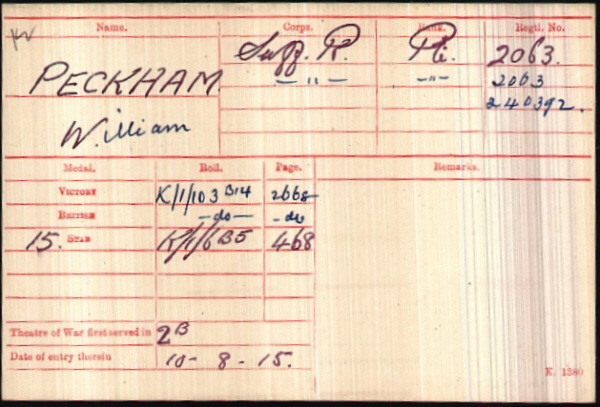 Name. Corps. Rank. Regtl. No.
PECKHAM Suff. R. Pte. 2063.
— " — — " — 2063
William 240392.
Medal. Roll. Page. Remarks.
VICTORY K/1/103 B14 2668
BRITISH —do— —do
15. STAR K/1/6 B5 468
Theatre of War first served in 2B
Date of entry therein 10 - 8 - 15.
K. 1380